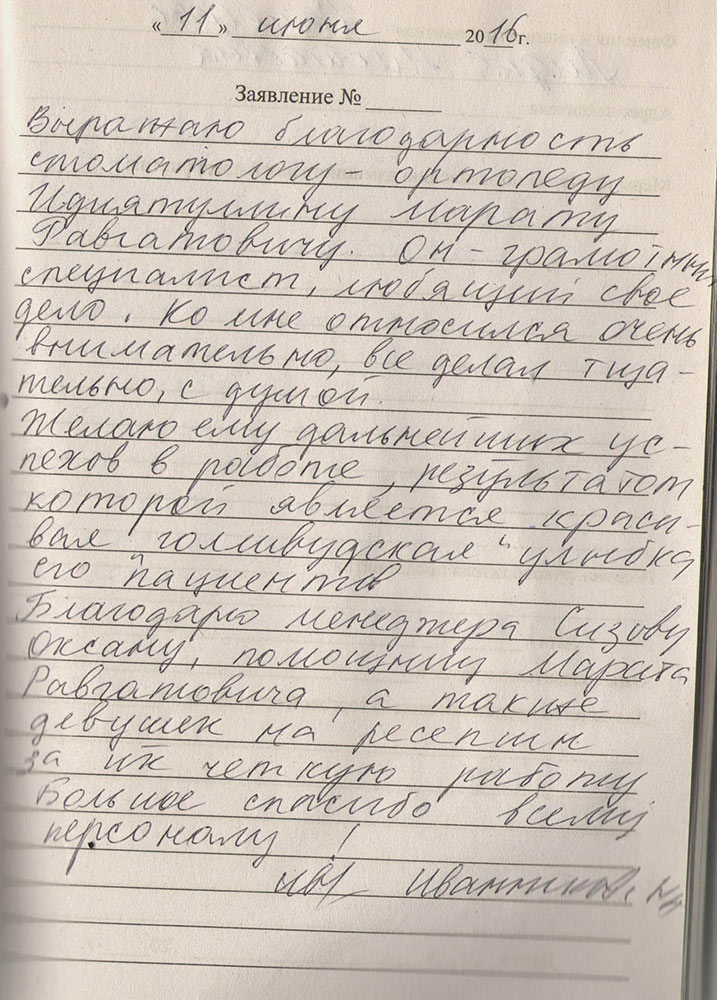 « 11 » июня 2016г.
Заявление №
Выражаю благодарность
стоматологу - ортопеду
Идиятуллину Марату
Равгатовичу. Он - грамотный
специалист, любящий свое
дело. Ко мне относился очень
внимательно, все делал тща-
тельно, с думой.
Желаю ему дальнейших ус-
пехов в работе, результатом
которой является краси-
вая голивудская "улыбка
его "пациентов
Благодарю менеджера Сизову
Оксану, помощницу Марата
Равгатовича, а также
девушек на ресепшн
за их четкую работу
Большое спасибо всему
персоналу !